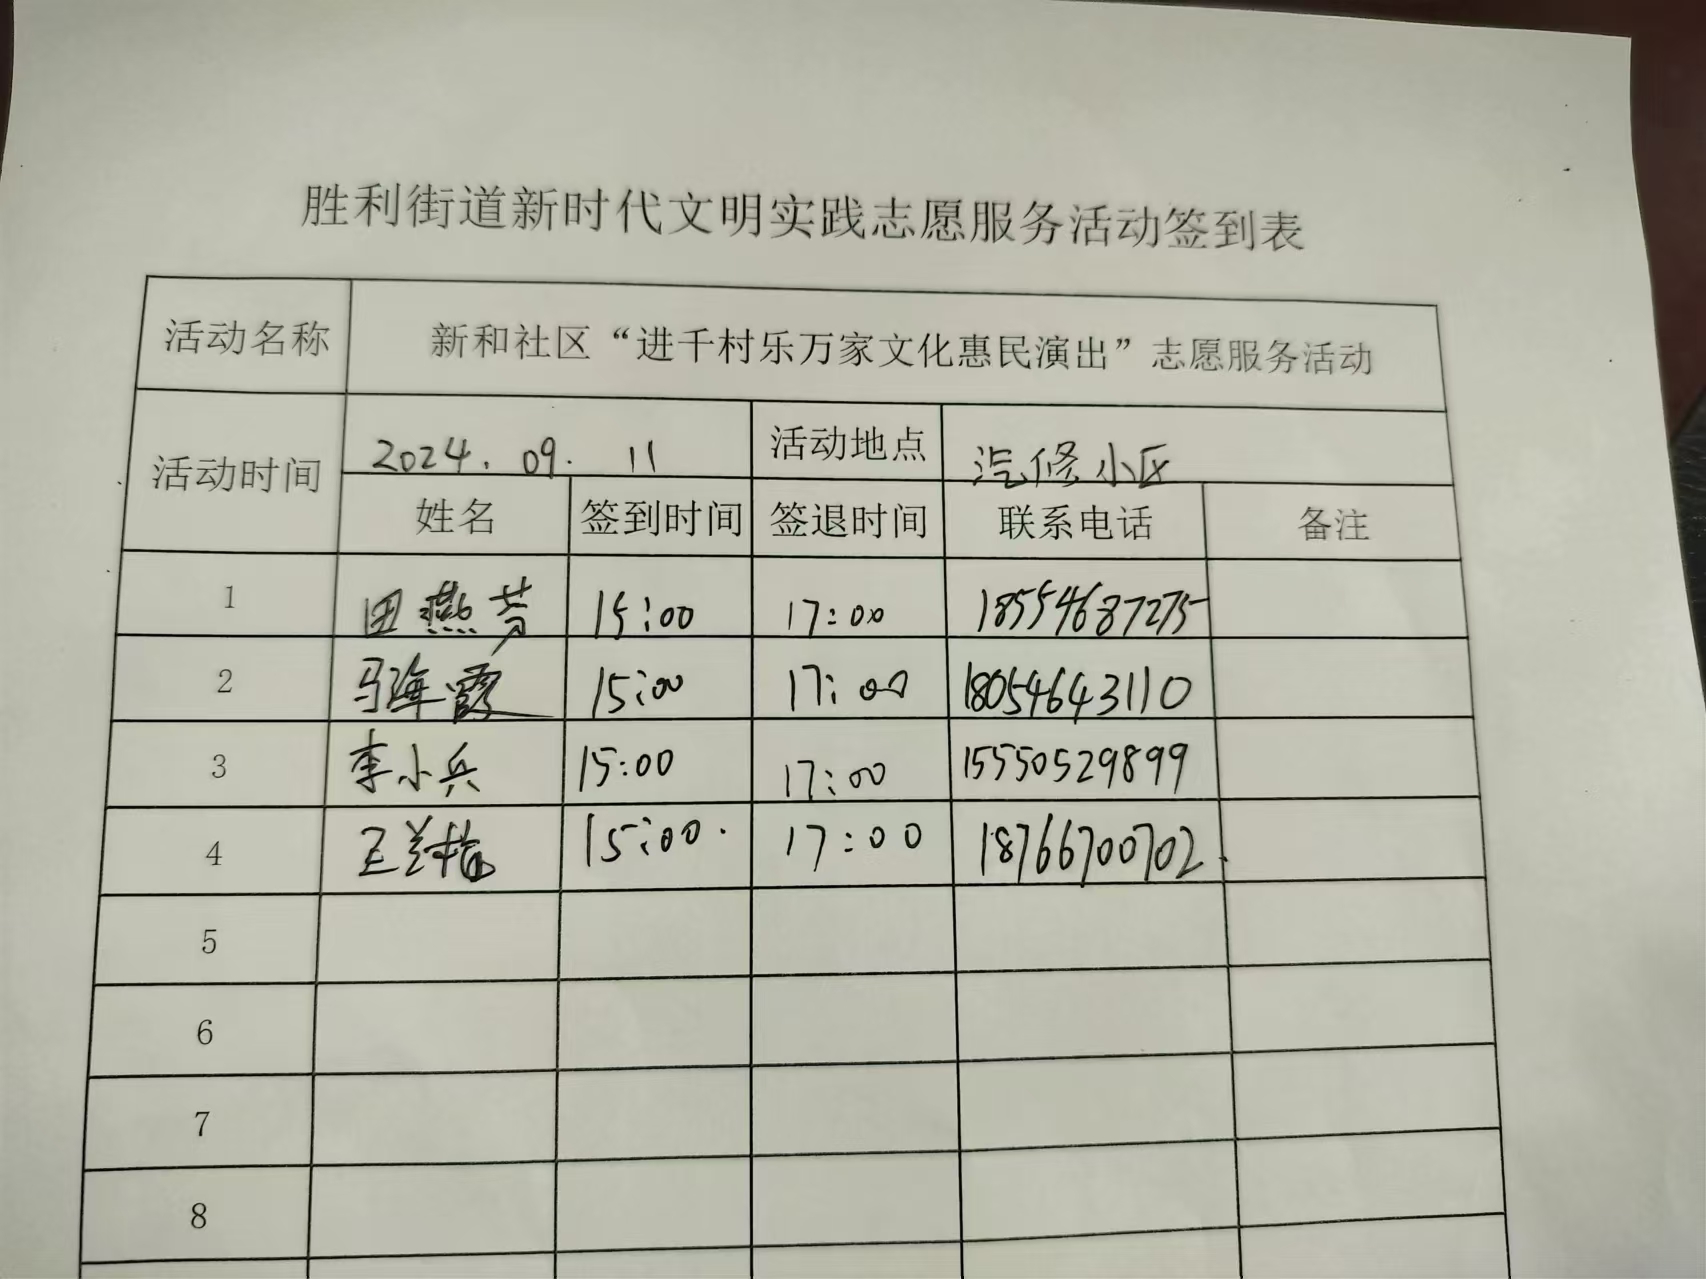 胜利街道新时代文明实践志愿服务活动签到表
活动名称 新和社区“进千村乐万家文化惠民演出”志愿服务活动
活动时间 2024.09.11 活动地点 汽修小区
姓名 签到时间 签退时间 联系电话 备注
1 田燕芳 15:00 17:00 18554687275
2 马海霞 15:00 17:00 18054643110
3 李小兵 15:00 17:00 15550529899
4 王兰 15:00. 17:00 18766700702.
5
6
7
8